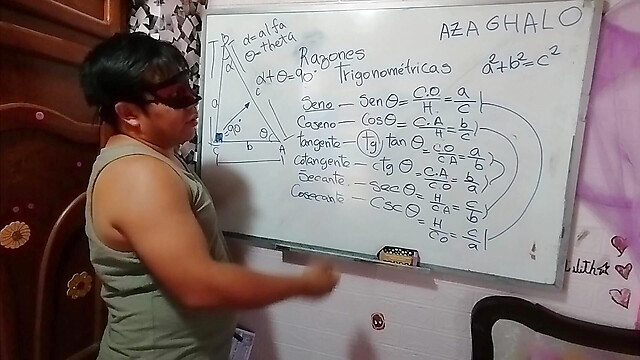 AZAGHALO
α = alfa
θ - theta
α + θ = 90°
Razones
Trigonométricas
a² + b² = c²
Seno — Sen θ = C.O/H = a/c
Coseno — cos θ = C.A/H = b/c
tangente — tg tan θ = C.O/CA = a/b
cotangente — ctg θ = C.A/C.O = b/a
Secante — sec θ = H/CA = c/b
Cosecante — Csc θ = H/CO = c/a
B
α
a
c
90°
θ
C
b
A